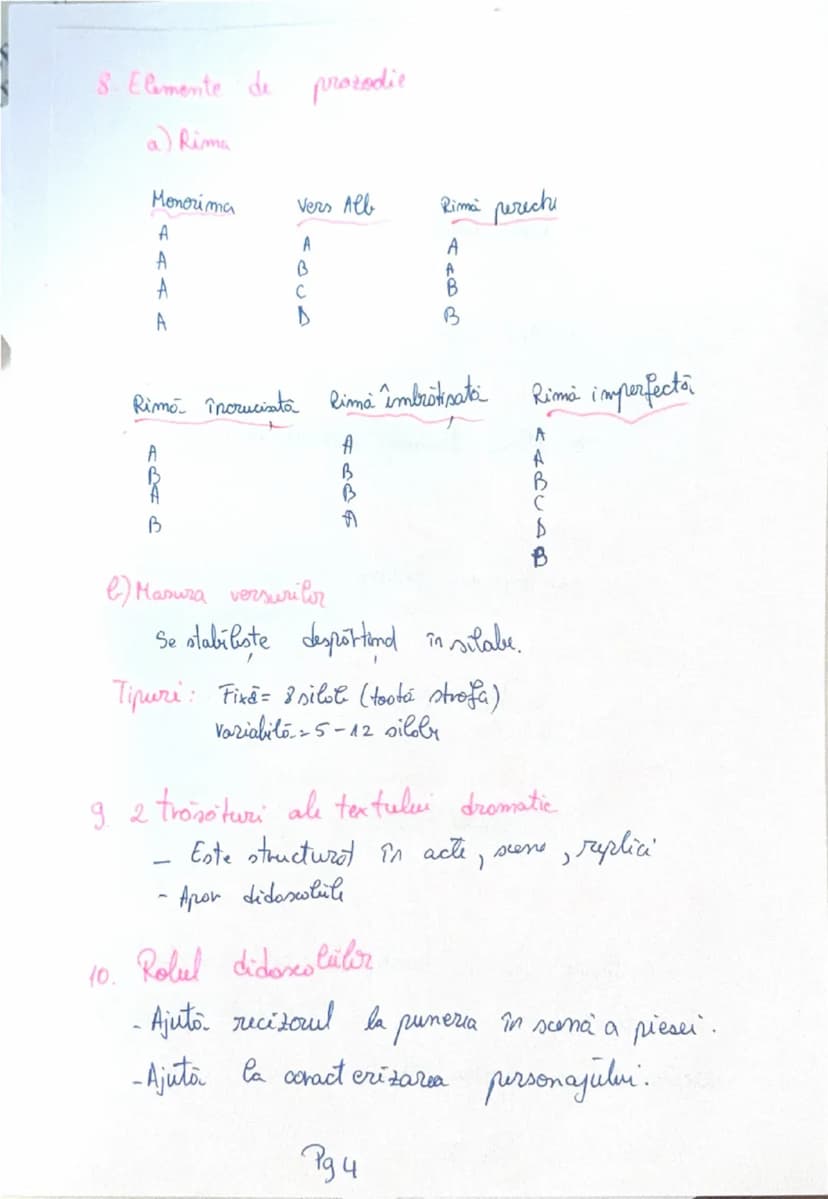 8. Elemente de prozodie
a) Rima
Monorima Vers Alb Rimă pereche
A A A
A B A
A C B
A D B
Rimă încrucișată Rimă îmbrățișată Rimă imperfectă
A A A
B B A
A B B
B A C
D
B
b) Masura versurilor
Se stabilește despărțind în silabe.
Tipuri: Fixă = 8 silabe (toată strofa)
Variabilă = 5-12 silabe
9. 2 trăsături ale textului dramatic
- Este structurat în acte, scene, replici
- Apar didascaliile
10. Rolul didascaliilor
- Ajută recizorul la punerea în scenă a piesei.
- Ajută la caracterizarea personajului.
Pg 4